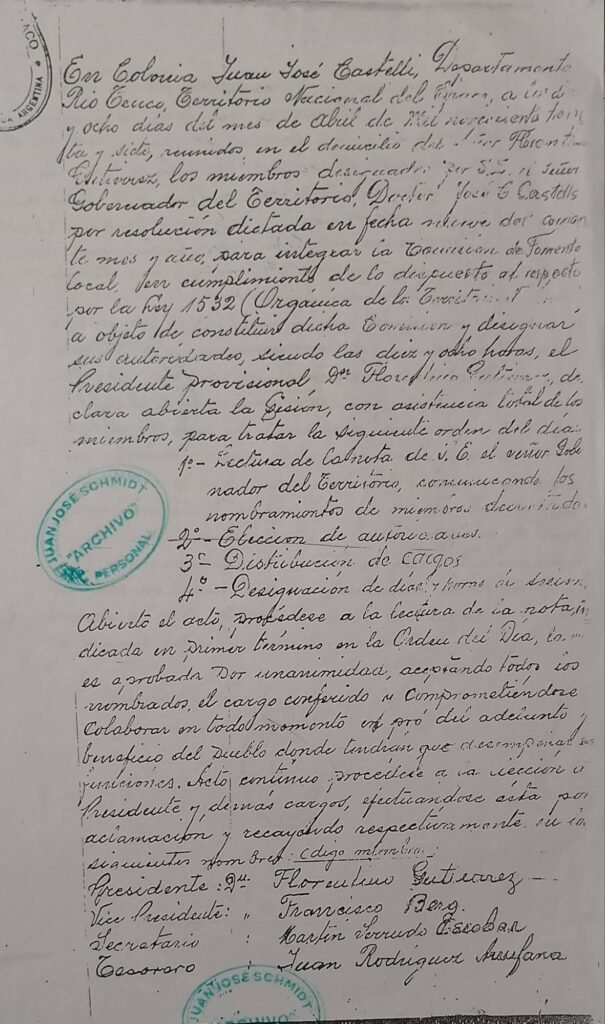 ACO
ARGENTINA
En Colonia Juan José Castelli, Departamento
Rio Teuco, Territorio Nacional del Chaco, a
y ocho días del mes de Abril de Mil novecientos trein
ta y siete, reunidos en el domicilio del Señor Florentino
Gutierrez, los miembros designados por S.E. el señor
Gobernador del Territorio, Doctor José C. Castells
por resolución dictada en fecha nueve del corrien
te mes y año, para integrar la Comisión de Fomento
local, en cumplimiento de lo dispuesto al respecto
por la Ley 1532 (Orgánica de los Territorios
a objeto de constituir dicha Comision y designar
sus autoridades, siendo las diez y ocho horas, el
Presidente provisional Dn Florentino Gutierrez, de-
clara abierta la Sesión, con asistencia total de los
miembros, para tratar la siguiente orden del día:
1º- Lectura de la nota de S.E. el señor Gobe
nador del Territorio, comunicando los
nombramientos de miembros decretados
2º- Eleccion de autoridades.
3º- Distribución de cargos
4º- Designación de días y horas de sesion.
Abierto el acto, procédese a la lectura de la nota in
dicada en primer término en la Orden del Día, la
es aprobada por unanimidad, aceptando todos los
nombrados, el cargo conferido y comprometiéndose
colaborar en todo momento en pró del adelanto y
beneficio del pueblo donde tendrán que desempeñar sus
funciones. Acto continuo procédese a la elección de
Presidente y demás cargos, efectuandose ésta por
aclamación y recayendo respectivamente en los
siguientes nombres: Código miembros:
Presidente: Dn. Florentino Gutierrez
Vice Presidente: " Francisco Berg.
Secretario : Martín Serrudo Escobar
Tesorero : Juan Rodríguez
JUAN JOSÉ SCHMIDT
"ARCHIVO"
PERSONAL
JUAN JOSÉ SCHMIDT
"ARCHIVO"